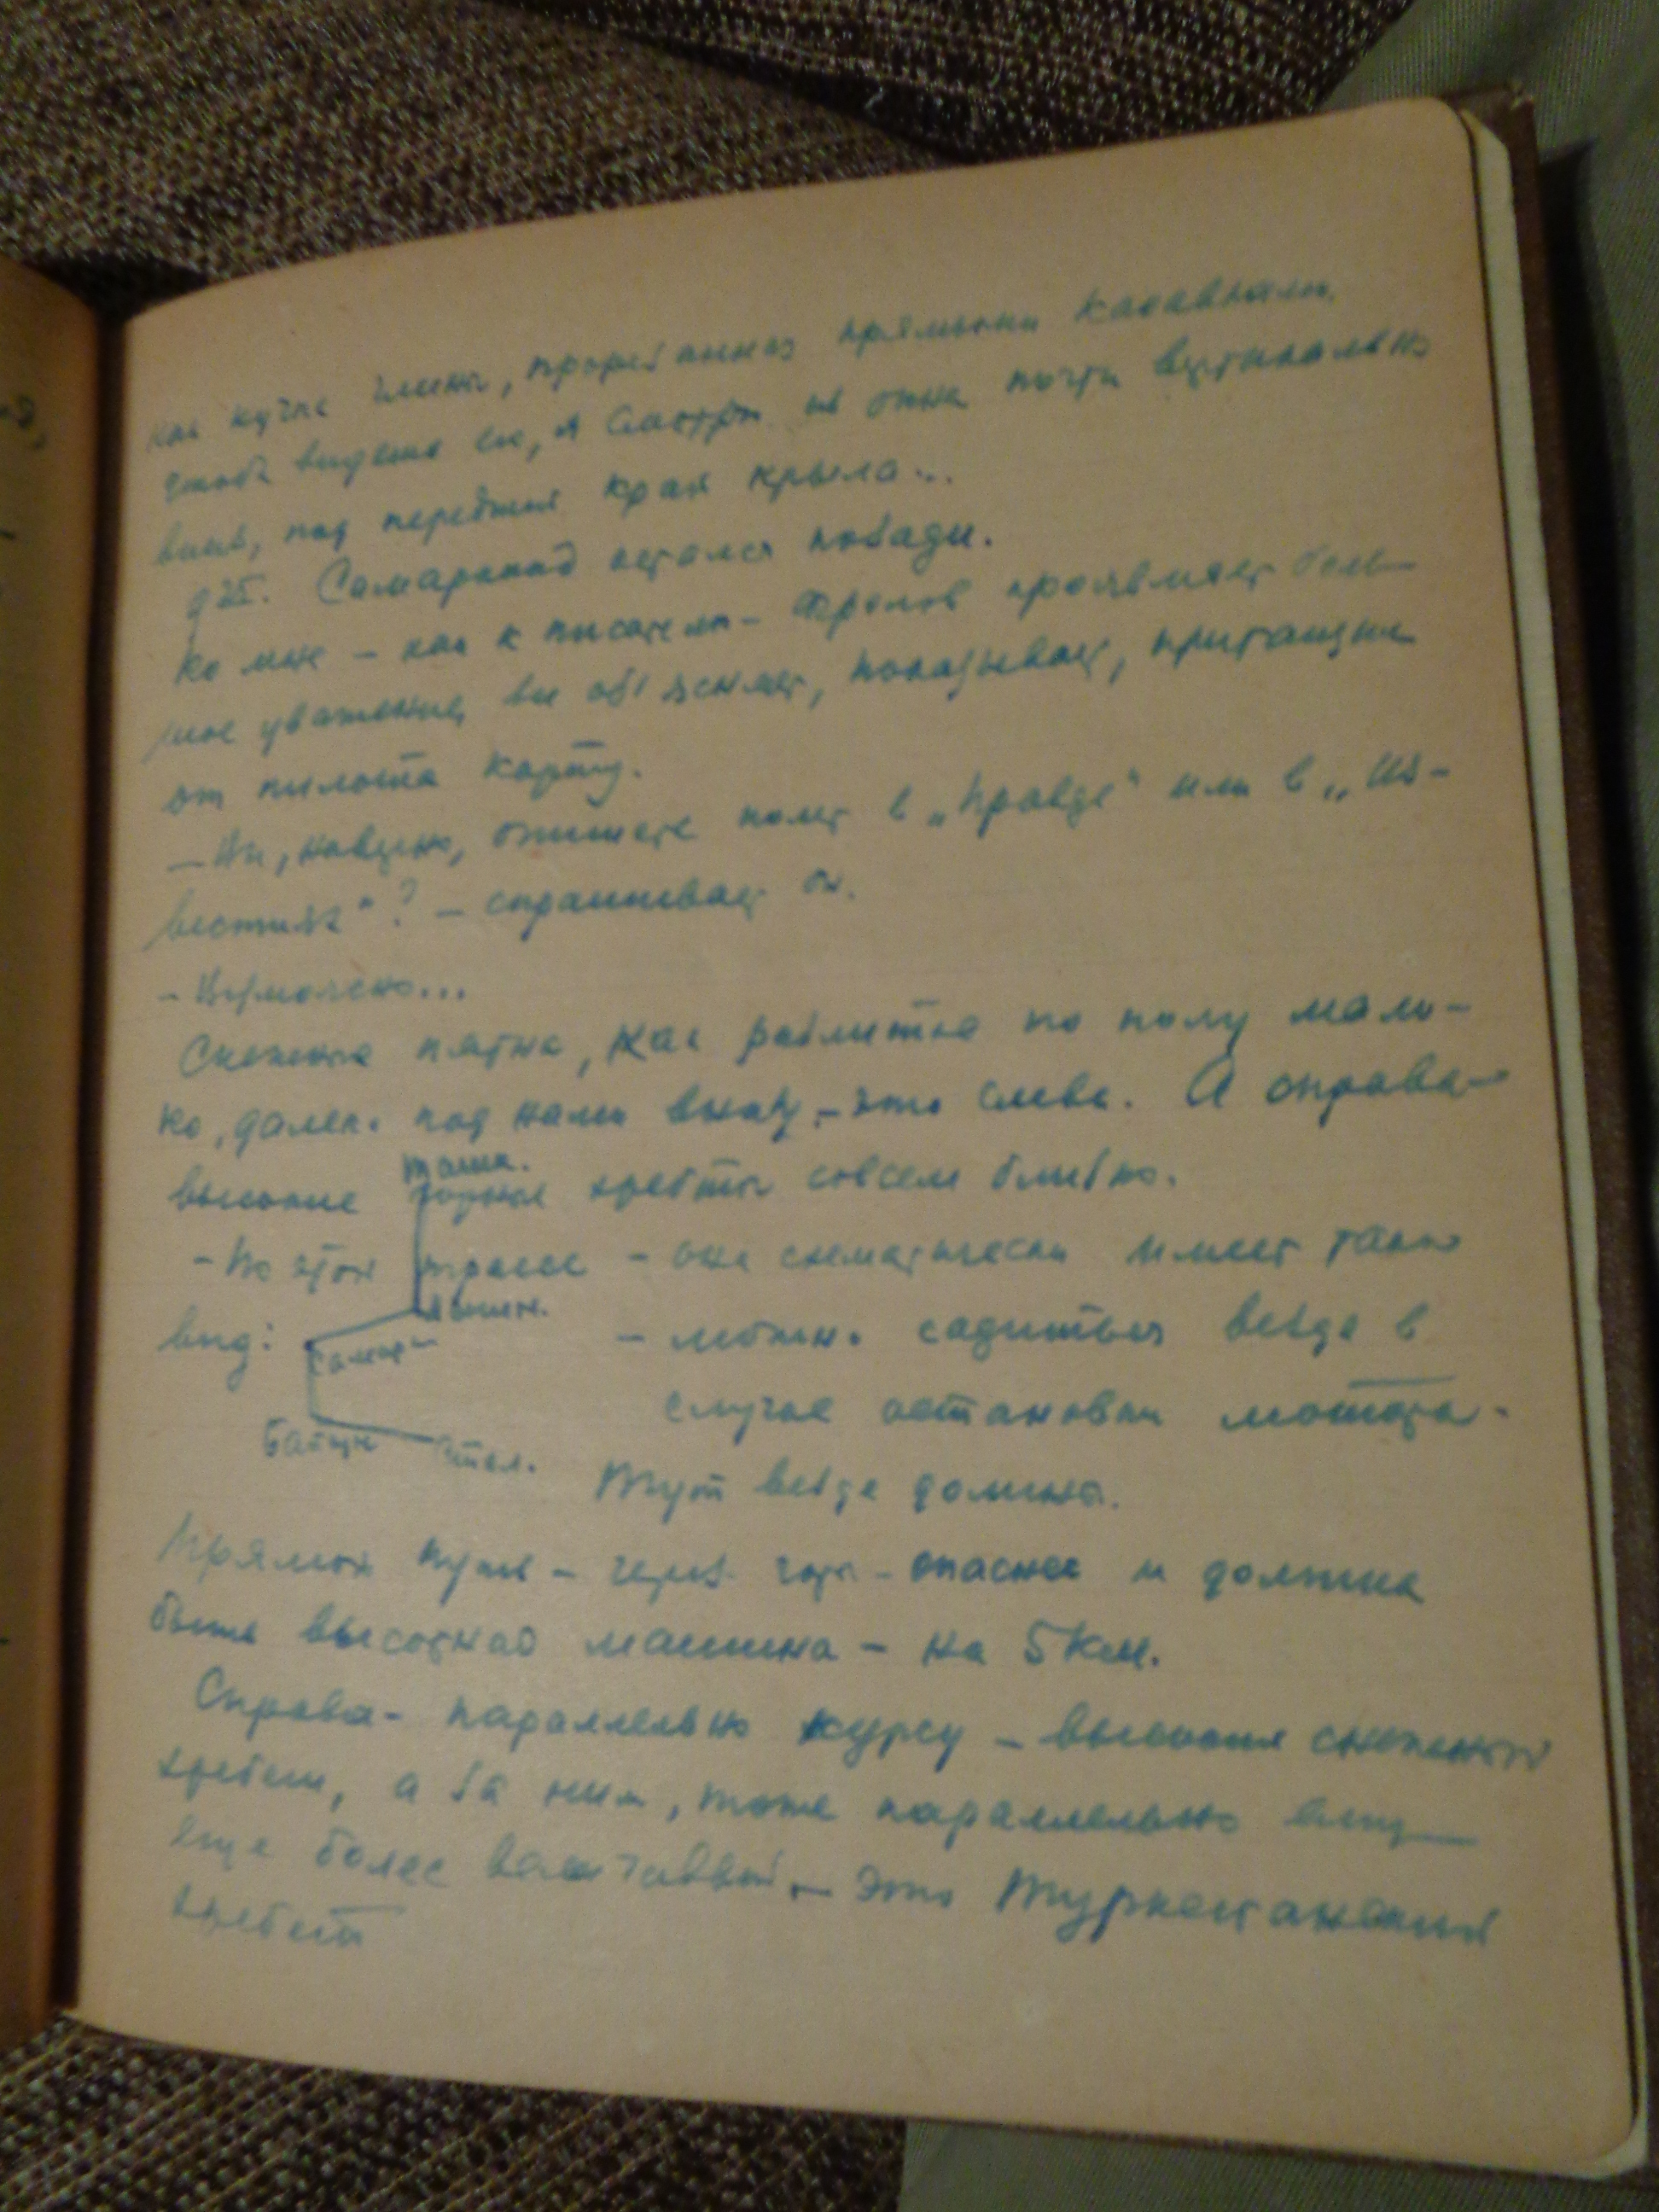 как кучка глины, прорезанная прямыми канавками.
Чтоб видеть его, я смотрю из окна почти вертикально
вниз, под передний край крыла...
925. Самарканд остался позади.
Ко мне – как к писателю – Фролов проявляет боль-
шое уважение, все объясняет, показывает, притащил
от пилота карту.
– Вы, наверно, опишете полет в „Правде“ или в „Из-
вестиях“? – спрашивает он.
– Возможно...
Снежные пятна, как разлитое по полу моло-
ко, далеко под нами внизу, – это слева. А справа –
высокие горные хребты совсем близко.
Ташк.
– По этой трассе – она схематически имеет такой
вид: – можно садиться везде в
Самар–
случае остановки мотора.
Стал.
Тут везде долина.
Прямой путь – через горы – опаснее и должна
быть высотная машина – на 5 км.
Справа – параллельно курсу – высокий снежный
хребет, а за ним, тоже параллельно ему
еще более величавый, – это Туркестанский
хребет